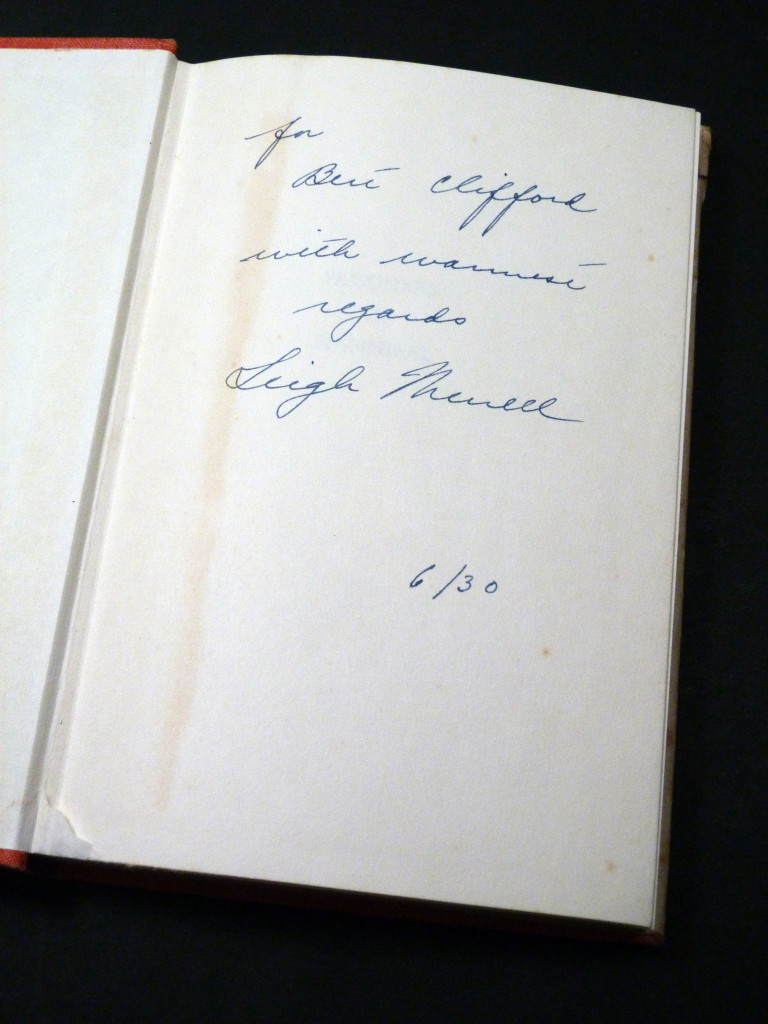 for
Bert Clifford
with warmest
regards
Leigh Merrell
6/30